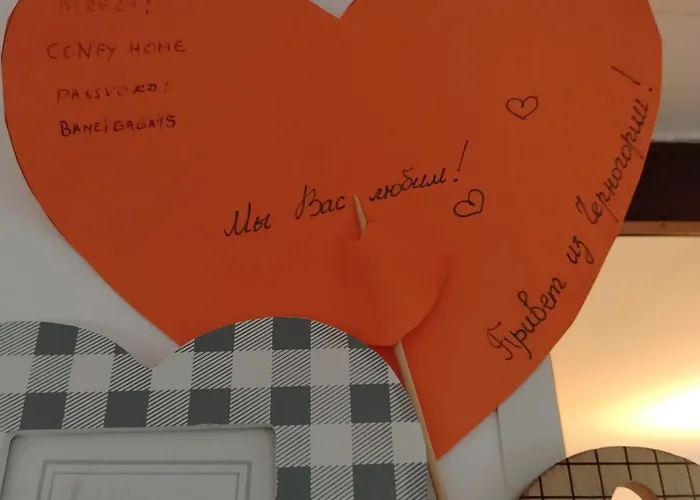 CONFY HOME
PASSVORD:
BANEIGAGA15
Мы Вас любим!
Привет из Черногории!